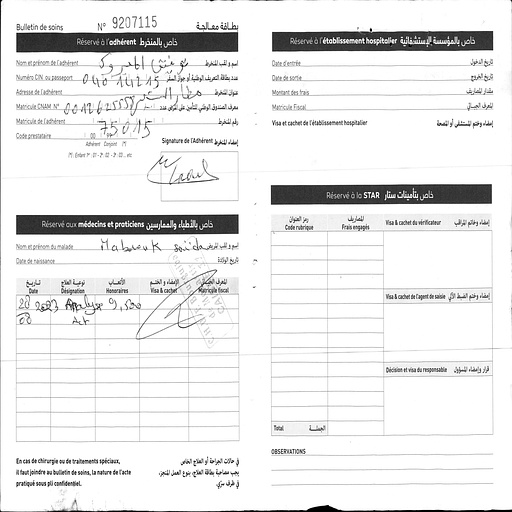 Bulletin de soins N° 9207115 بطاقة معالجة
Réservé à l'adhérent خاص بالمنخرط
Nom et prénom de l'adhérent اسم و لقب المنخرط
Numéro CIN ou passeport عدد بطاقة التعريف الوطنية أو جواز السفر
Adresse de l'adhérent عنوان المنخرط
Matricule CNAM N°
Matricule de l'adhérent رقم المنخرط
Code prestataire 00 75015
Adhérent Conjoint (*)
(*): Enfant N° : 01 - 2° : 02 - 3° : 03 ... etc
Signature de l'Adhérent إمضاء المنخرط
Réservé aux médecins et praticiens خاص بالأطباء والممارسين
Nom et prénom du malade Mabrouk saida اسم و لقب المريض
Date de naissance تاريخ الولادة
تاريخ نوعية العلاج الأتعاب الإمضاء و الختم المعرف الجبائي
Date Désignation Honoraires Visa & cachet Matricule fiscal
28 2023 Analyse 9,500
08
En cas de chirurgie ou de traitements spéciaux,
il faut joindre au bulletin de soins, la nature de l'acte
pratiqué sous pli confidentiel.
في حالات الجراحة أو العلاج الخاص
يجب مصاحبة بطاقة العلاج، بنوع العمل المنجز،
في ظرف سري.
Réservé à l'établissement hospitalier خاص بالمؤسسة الإستشفائية
Date d'entrée تاريخ الدخول
Date de sortie تاريخ الخروج
Montant des frais مقدار المصاريف
Matricule Fiscal المعرف الجبائي
Visa et cachet de l'établissement hospitalier إمضاء وختم المستشفى أو المصحة
Réservé à la STAR خاص بتأمينات ستار
رمز العنوان المصاريف
Code rubrique Frais engagés
Visa & cachet du vérificateur إمضاء وختم المراقب
Visa & cachet de l'agent de saisie إمضاء وختم الضبط الآلي
Décision et visa du responsable قرار وإمضاء المسؤول
Total الجملة
OBSERVATIONS